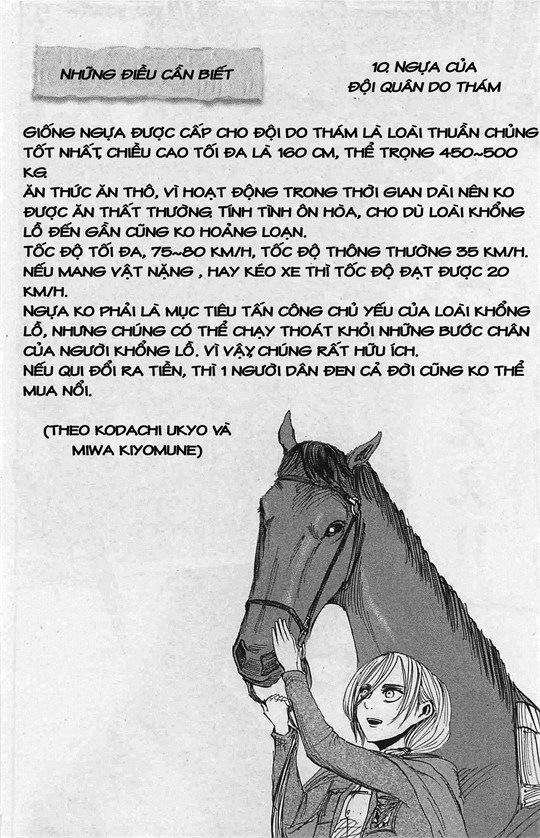 NHỮNG ĐIỀU CẦN BIẾT
10. NGỰA CỦA
ĐỘI QUÂN DO THÁM
GIỐNG NGỰA ĐƯỢC CẤP CHO ĐỘI DO THÁM LÀ LOÀI THUẦN CHỦNG
TỐT NHẤT, CHIỀU CAO TỐI ĐA LÀ 160 CM, THỂ TRỌNG 450~500
KG.
ĂN THỨC ĂN THÔ, VÌ HOẠT ĐỘNG TRONG THỜI GIAN DÀI NÊN KO
ĐƯỢC ĂN THẤT THƯỜNG. TÍNH TÌNH ÔN HÒA, CHO DÙ LOÀI KHỔNG
LỒ ĐẾN GẦN CŨNG KO HOẢNG LOẠN.
TỐC ĐỘ TỐI ĐA, 75~80 KM/H, TỐC ĐỘ THÔNG THƯỜNG 35 KM/H.
NẾU MANG VẬT NẶNG , HAY KÉO XE THÌ TỐC ĐỘ ĐẠT ĐƯỢC 20
KM/H.
NGỰA KO PHẢI LÀ MỤC TIÊU TẤN CÔNG CHỦ YẾU CỦA LOÀI KHỔNG
LỒ, NHƯNG CHÚNG CÓ THỂ CHẠY THOÁT KHỎI NHỮNG BƯỚC CHÂN
CỦA NGƯỜI KHỔNG LỒ. VÌ VẬY, CHÚNG RẤT HỮU ÍCH.
NẾU QUI ĐỔI RA TIỀN, THÌ 1 NGƯỜI DÂN ĐEN CẢ ĐỜI CŨNG KO THỂ
MUA NỔI.
(THEO KODACHI UKYO VÀ
MIWA KIYOMUNE)